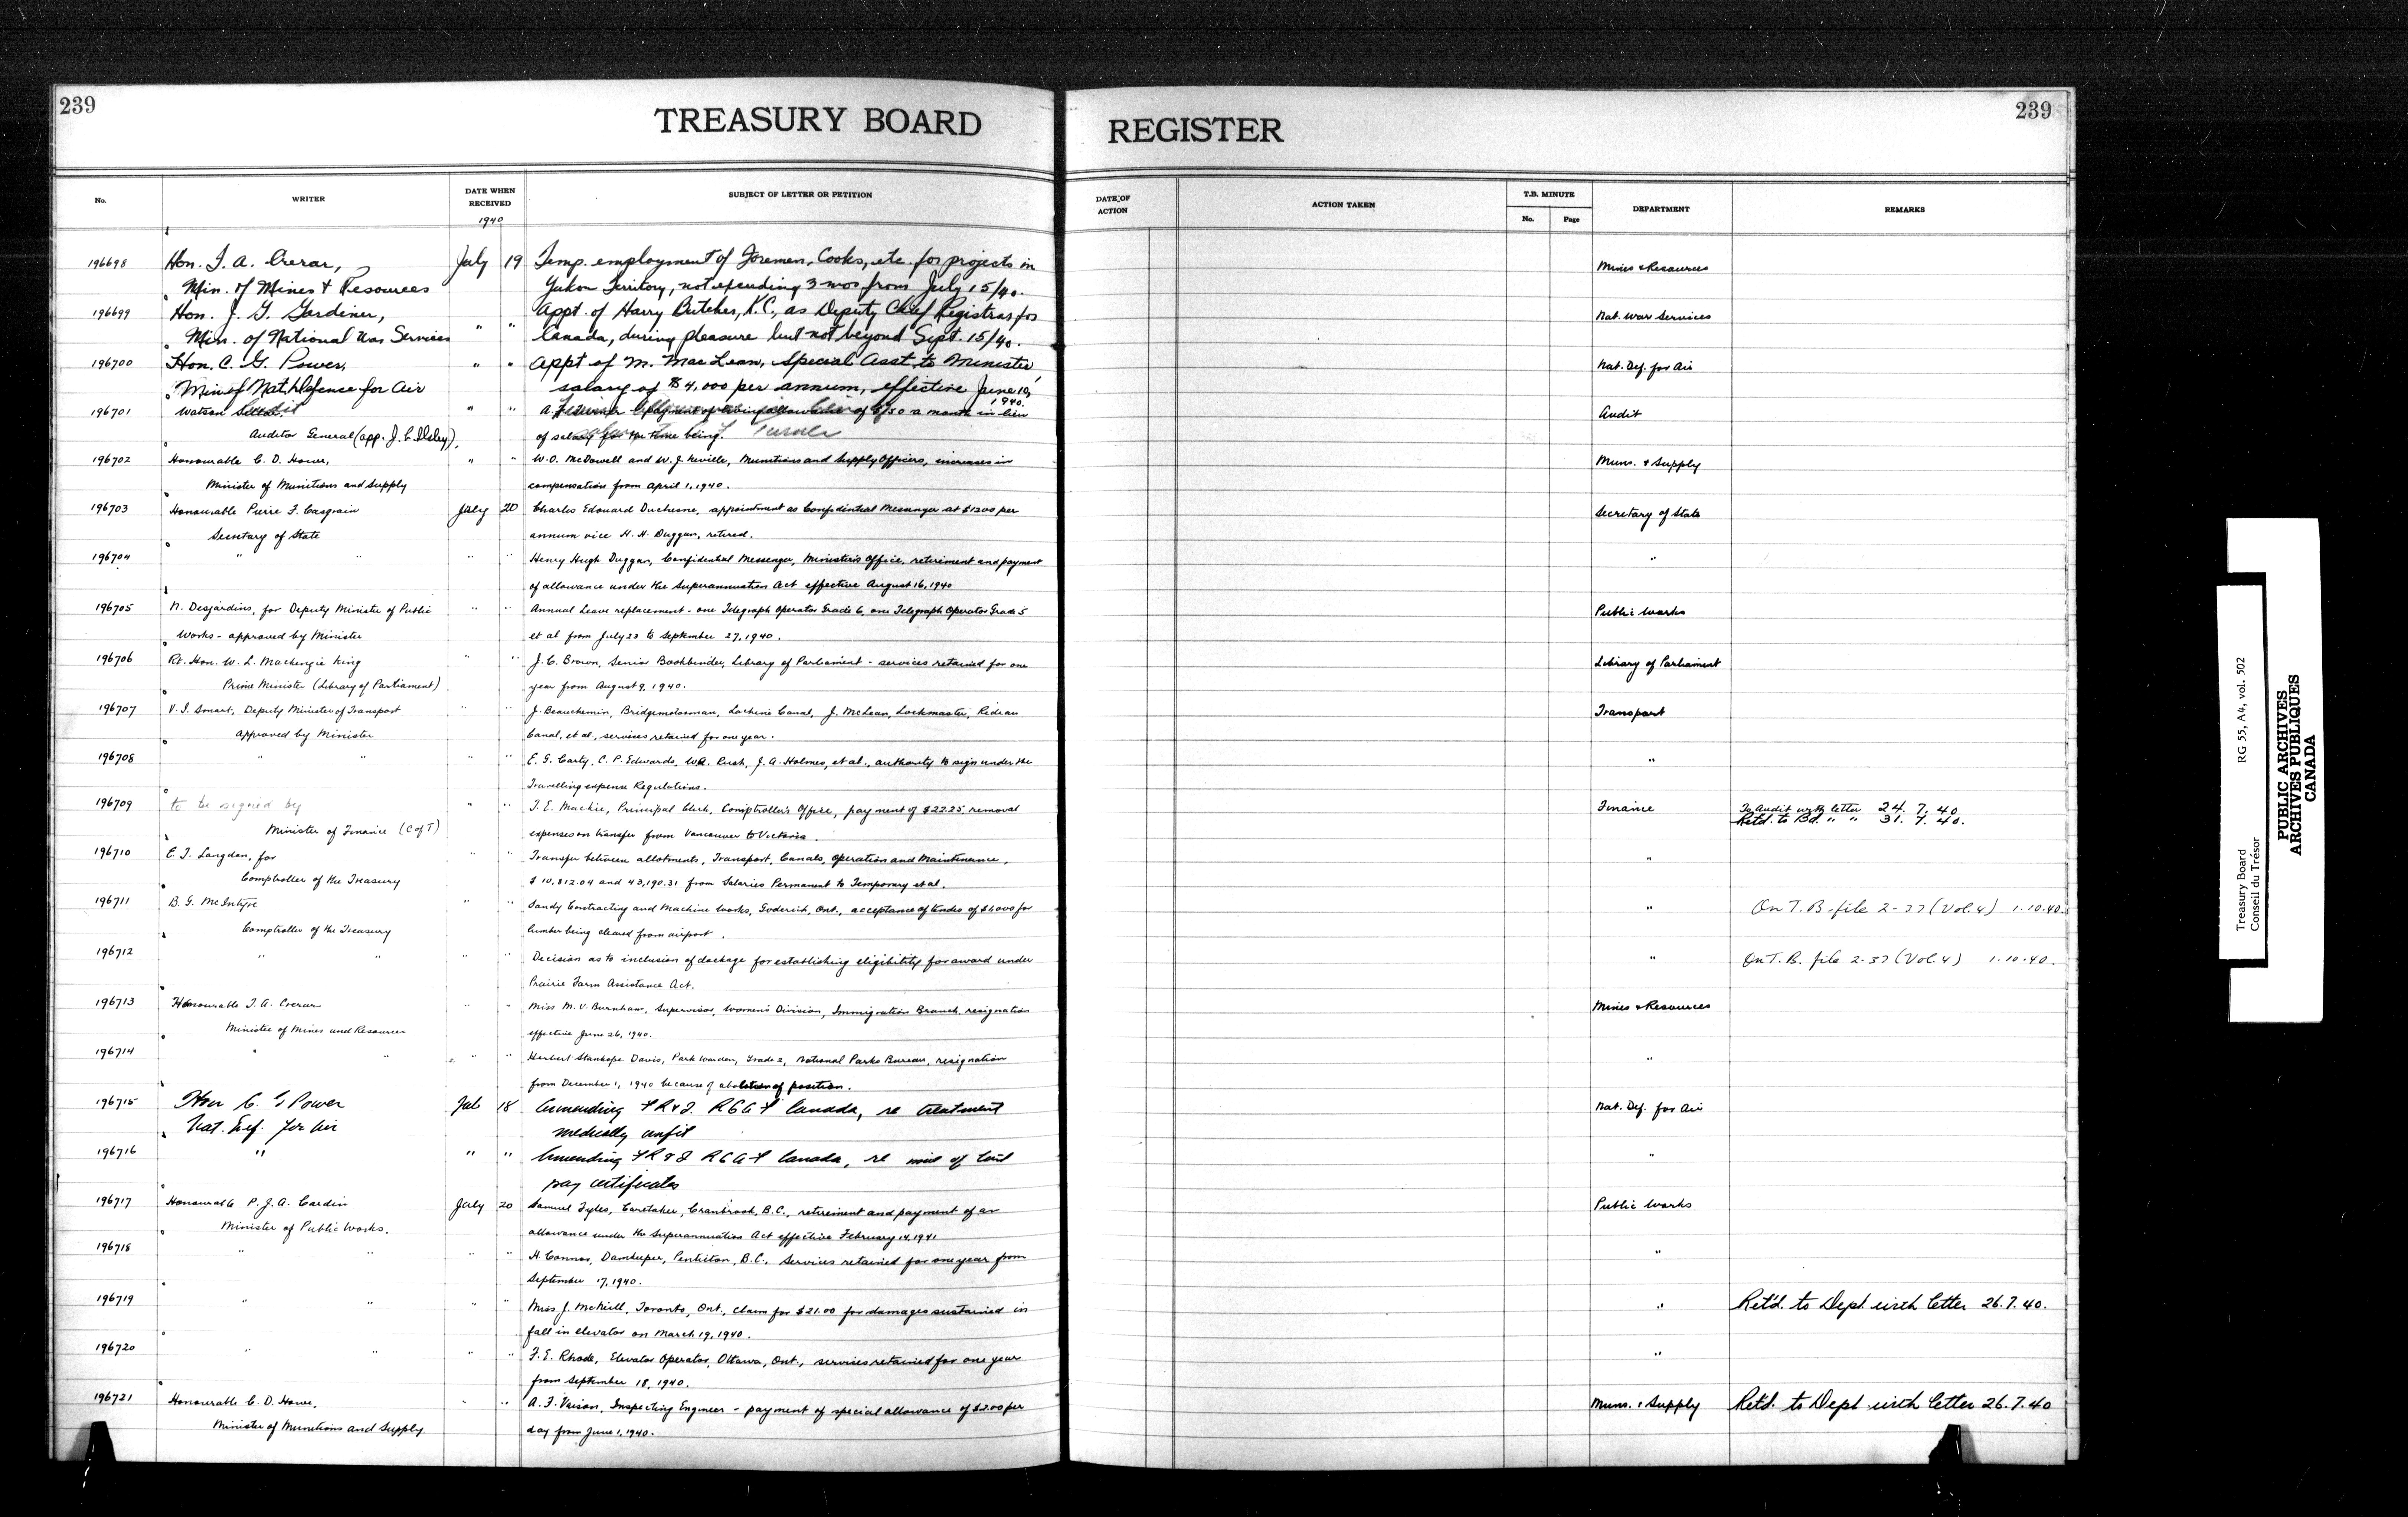 239
TREASURY BOARD REGISTER
239
No. WRITER DATE WHEN RECEIVED SUBJECT OF LETTER OR PETITION DATE OF ACTION ACTION TAKEN T.B. MINUTE No. Page DEPARTMENT REMARKS
1940
196698 Hon. T. A. Crerar, July 19 Temp. employment of Foremen, Cooks, etc. for projects in Mines & Resources
Min. of Mines & Resources Yukon Territory, not exceeding 3 mos from July 15/40.
196699 Hon. J. G. Gardiner, " " Appt. of Harry Butcher, K.C., as Deputy Chief Registrar for Nat. War Services
Min. of National War Services Canada, during pleasure but not beyond Sept. 15/40.
196700 Hon. C. G. Power, " " Appt of M. MacLean, Special Asst to Minister, Nat. Def. for Air
Min of Nat. Defence for Air salary of $4,000 per annum, effective June 10, 1940.
196701 Watson Sellar, " " A. F. Turner payment of living allowance of $150 a month in lieu Audit
Auditor General (app. J. L. Ilsley), of salary for the time being.
196702 Honourable C. D. Howe, " " W. O. McDowell and W. J. Neville, Munitions and Supply Officers, increases in Muns. & Supply
Minister of Munitions and Supply compensation from April 1, 1940.
196703 Honourable Pierre F. Casgrain July 20 Charles Edouard Duchesne, appointment as Confidential Messenger at $1200 per Secretary of State
Secretary of State annum vice H. H. Duggan, retired.
196704 " " " " Henry Hugh Duggan, Confidential Messenger, Minister's Office, retirement and payment "
of allowance under the Superannuation Act effective August 16, 1940
196705 N. Desjardins, for Deputy Minister of Public " " Annual Leave replacement - one Telegraph Operator Grade 6, one Telegraph Operator Grade 5 Public Works
Works - approved by Minister et al from July 23 to September 27, 1940.
196706 Rt. Hon. W. L. Mackenzie King " " J. C. Brown, Senior Bookbinder, Library of Parliament - services retained for one Library of Parliament
Prime Minister (Library of Parliament) year from August 9, 1940.
196707 V. I. Smart, Deputy Minister of Transport " " J. Beauchemin, Bridgemotorman, Lachine Canal, J. McLean, Lockmaster, Rideau Transport
approved by Minister Canal, et al., services retained for one year.
196708 " " E. G. Carty, C. P. Edwards, W.A. Rush, J. A. Holmes, et al., authority to sign under the "
Travelling expense Regulations.
196709 to be signed by " " T. E. Mackie, Principal Clerk, Comptroller's Office, payment of $22.25 removal Finance To Audit with letter 24. 7. 40
Minister of Finance (C of T) expenses on transfer from Vancouver to Victoria. Ret'd. to Bd. " " 31. 7. 40.
196710 E. J. Langdon, for " " Transfer between allotments, Transport, Canals, Operation and Maintenance, "
Comptroller of the Treasury $10,812.04 and 43,190.31 from Salaries Permanent to Temporary et al.
196711 B. G. McIntyre " " Sandy Contracting and Machine Works, Goderich, Ont., acceptance of tender of $6000 for " On T.B. file 2-37 (Vol. 4) 1.10.40.
Comptroller of the Treasury lumber being cleared from airport.
196712 " " " " Decision as to inclusion of dockage for establishing eligibility for award under " On T.B. file 2-37 (Vol. 4) 1.10.40.
Prairie Farm Assistance Act.
196713 Honourable T. A. Crerar " " Miss M. V. Burnham, Supervisor, Women's Division, Immigration Branch, resignation Mines & Resources
Minister of Mines and Resources effective June 26, 1940.
196714 " " " " Herbert Stanhope Davis, Park Warden, Grade 2, National Parks Bureau, resignation "
from December 1, 1940 because of abolition of position.
196715 Hon C. G Power Jul 18 Amending F R & I. RCAF Canada, re treatment Nat. Def. for Air
Nat. Def. for Air medically unfit
196716 " " " Amending F R & I RCAF Canada, re of last "
pay certificates
196717 Honourable P. J. A. Cardin July 20 Samuel Fyles, Caretaker, Cranbrook, B.C., retirement and payment of an Public Works
Minister of Public Works. allowance under the Superannuation Act effective February 14, 1941
196718 " " " " H. Connor, Damkeeper, Penticton, B.C., services retained for one year from "
September 17, 1940.
196719 " " " " Miss J. McNeill, Toronto, Ont., claim for $21.00 for damages sustained in " Ret'd. to Dept. with letter 26.7.40.
fall in elevator on March 19, 1940.
196720 " " " " F. E. Rhode, Elevator Operator, Ottawa, Ont., services retained for one year "
from September 18, 1940.
196721 Honourable C. D. Howe, " " A. F. Vaison, Inspecting Engineer - payment of special allowance of $2.00 per Muns. & Supply Ret'd. to Dept with letter 26.7.40
Minister of Munitions and Supply day from June 1, 1940.
Treasury Board RG 55, A4, vol. 502
Conseil du Trésor
PUBLIC ARCHIVES
ARCHIVES PUBLIQUES
CANADA